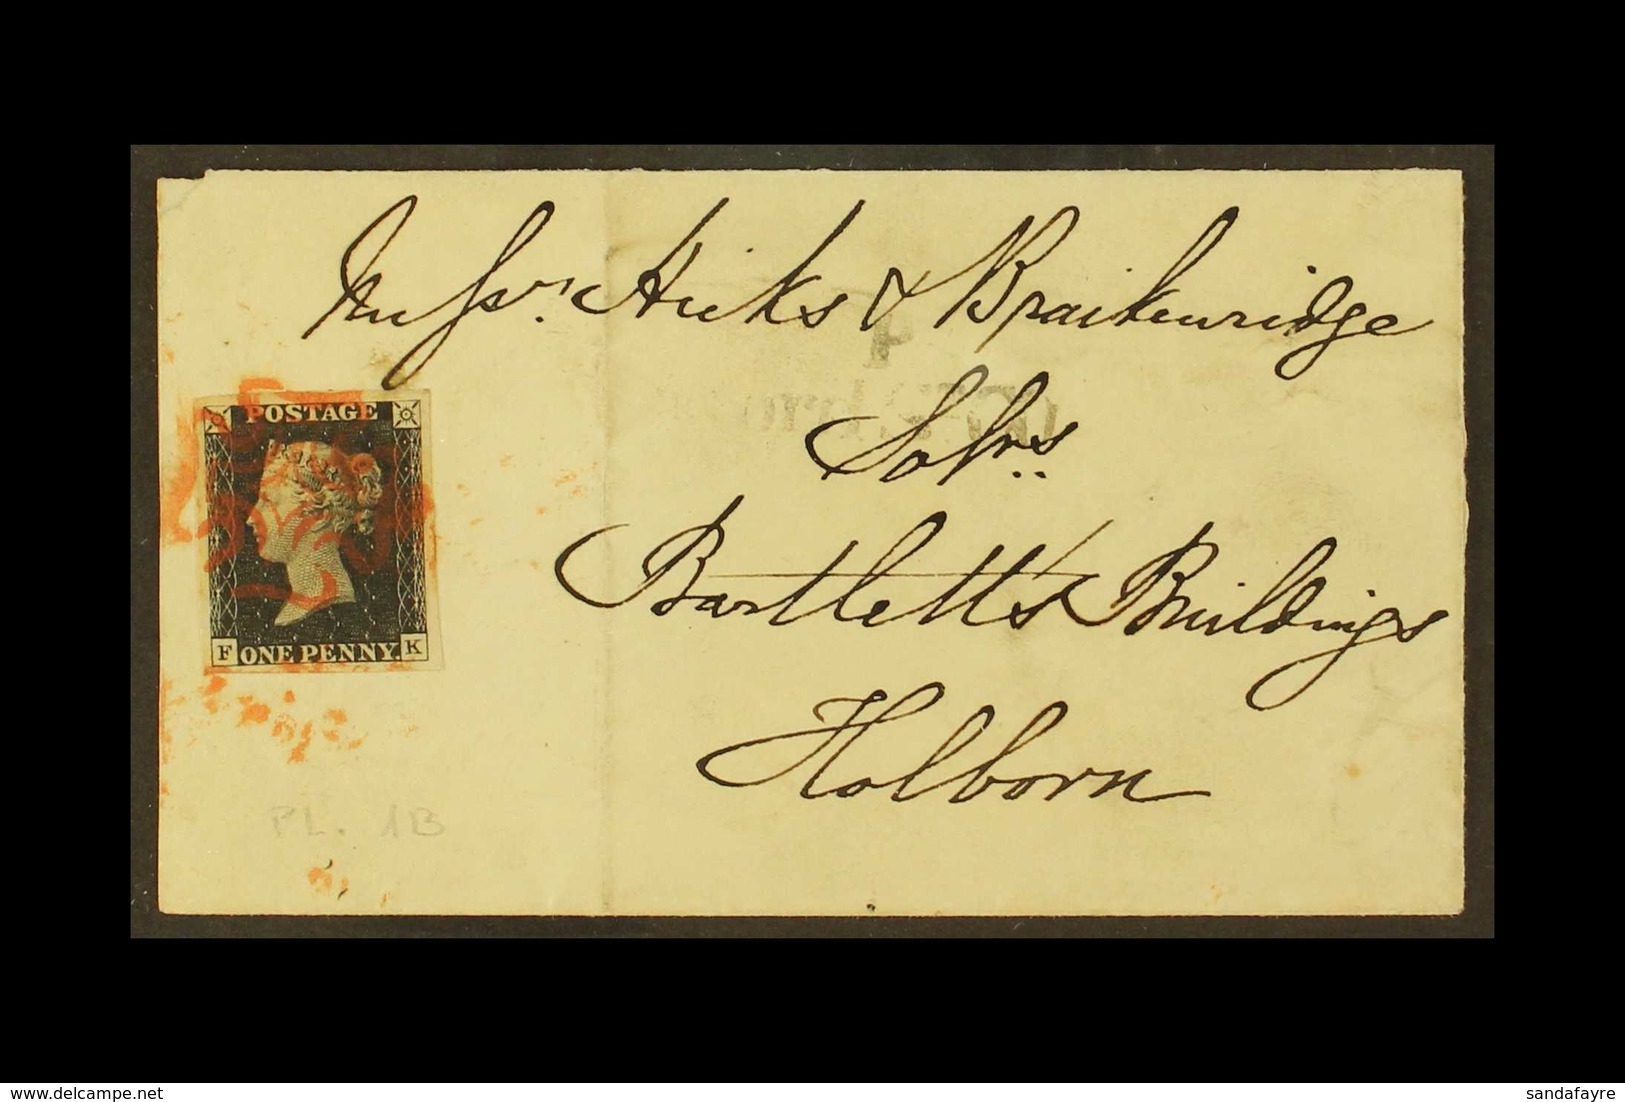 Messrs. Hicks & Braikenridge
Solrs
Bartlett's Buildings
Holborn
POSTAGE
F ONE PENNY. K
PL. 1B
www.delcampe.net
sandafayre